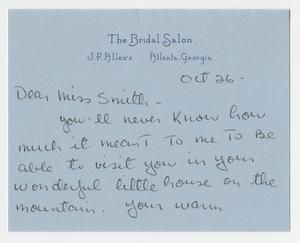 The Bridal Salon
J.P. Allen's Atlanta, Georgia
Oct 26-
Dear Miss Smith-
you'll never know how
much it meant to me to be
able to visit you in your
wonderful little house on the
mountain. Your warm